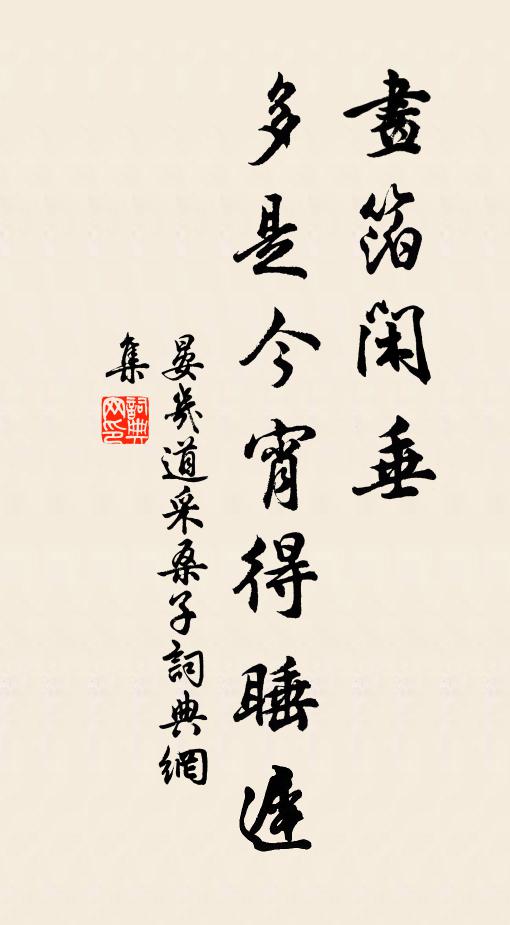 畫箔閑垂
多是今宵得睡遲
晏幾道采桑子詞典網
集
詞典网印